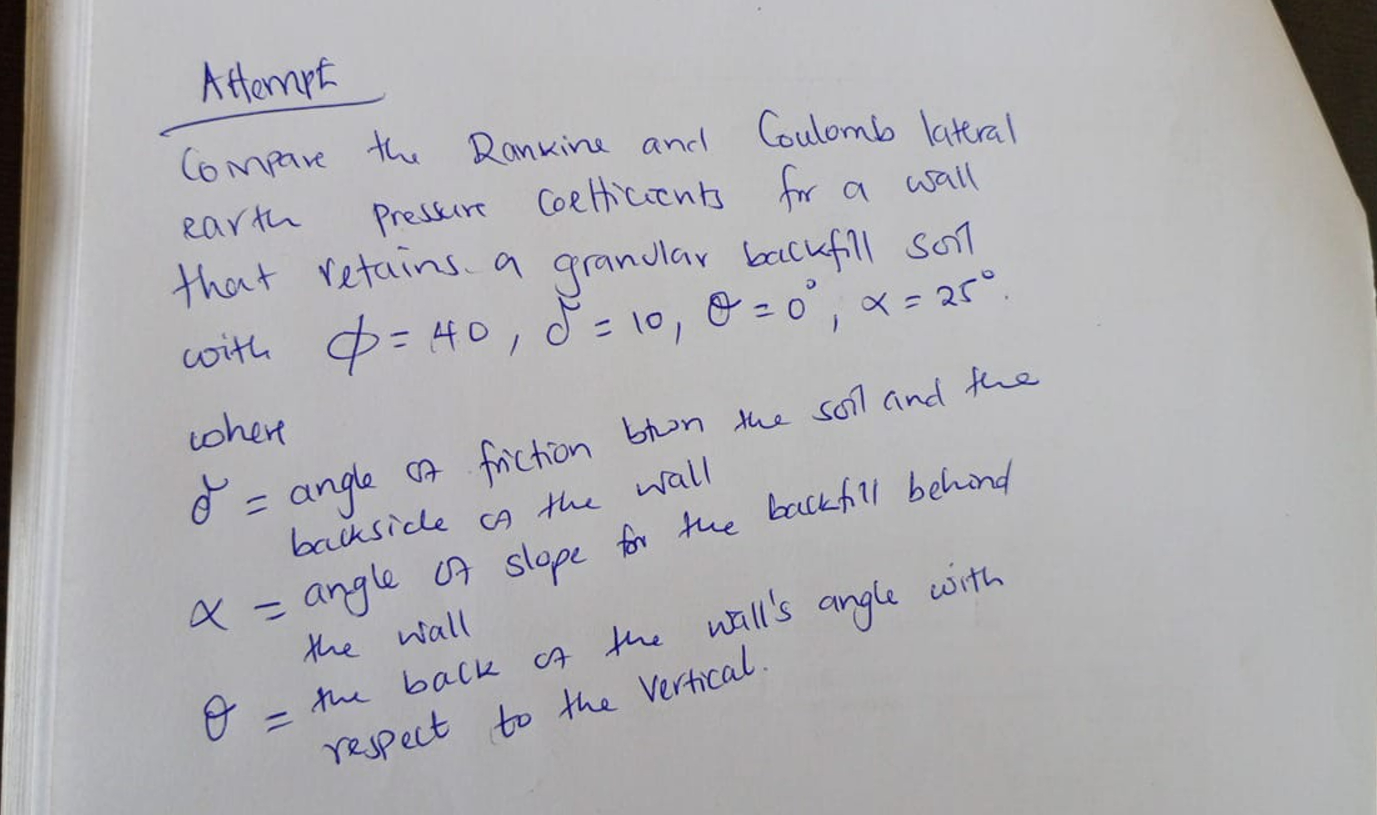 Attempt
Compare the Rankine and Coulomb lateral
earth pressure coefficients for a wall
that retains a granular backfill soil
with ϕ = 40, δ = 10, θ = 0°, α = 25°.
where
δ = angle of friction btwn the soil and the
backside of the wall
α = angle of slope for the backfill behind
the wall
θ = the back of the wall's angle with
respect to the vertical.